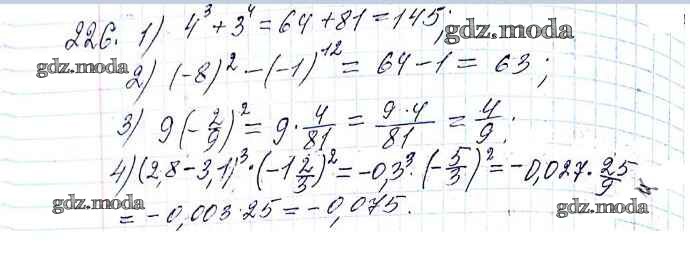 226. 1) 4³ + 3⁴ = 64 + 81 = 145;
gdz.moda
gdz.moda
2) (-8)² - (-1)¹² = 64 - 1 = 63;
gdz.moda
3) 9(-2/9)² = 9 · 4/81 = 9·4/81 = 4/9.
4) (2,8 - 3,1)³ · (-1 2/3)² = -0,3³ · (-5/3)² = -0,027 · 25/9 =
= -0,003·25 = -0,075.
gdz.moda
gdz.moda